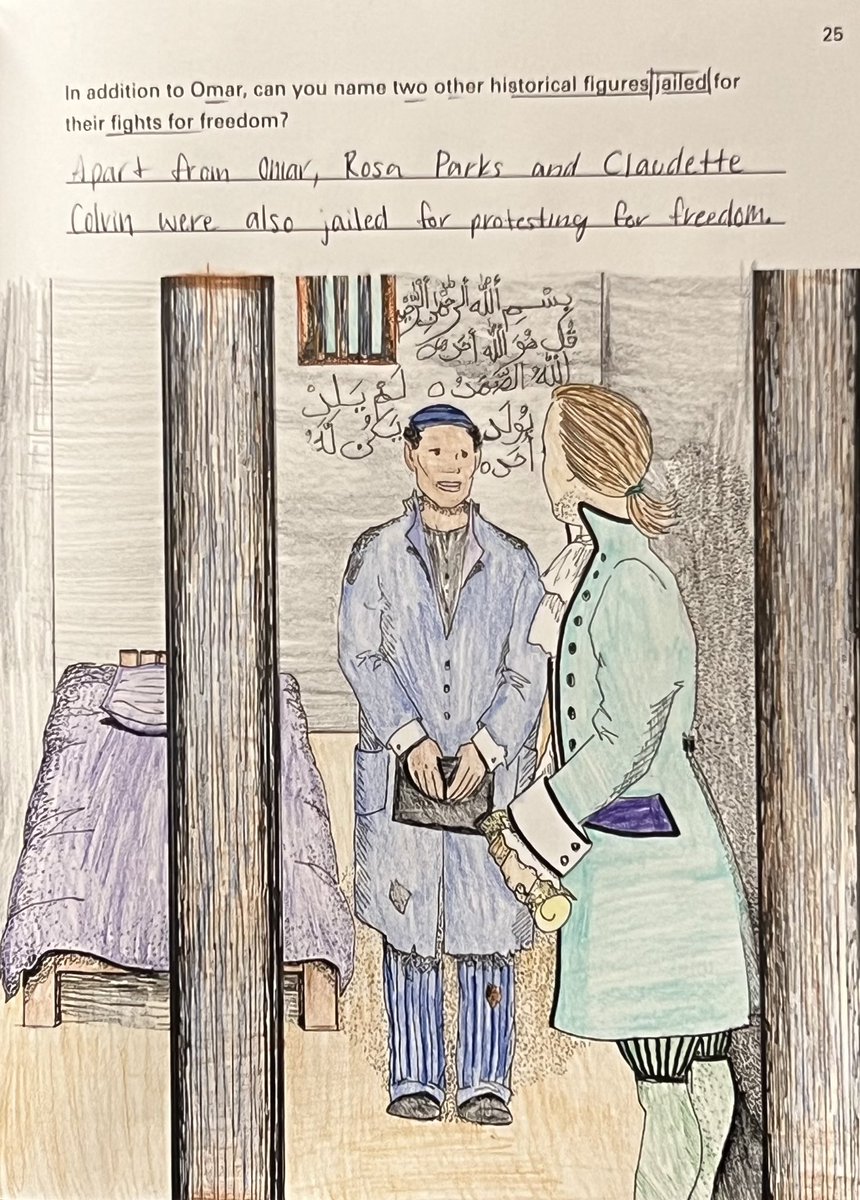 25
In addition to Omar, can you name two other historical figures jailed for
their fights for freedom?
Apart from Omar, Rosa Parks and Claudette
Colvin were also jailed for protesting for freedom.
بِسْمِ اللهِ الرَّحْمٰنِ
قُلْ هُوَ اللهُ أَحَد
اللهُ الصَّمَدُ ه لَمْ يَلِدْ
يُولَدْ يَكُنْ لَهُ
أَحَد ه